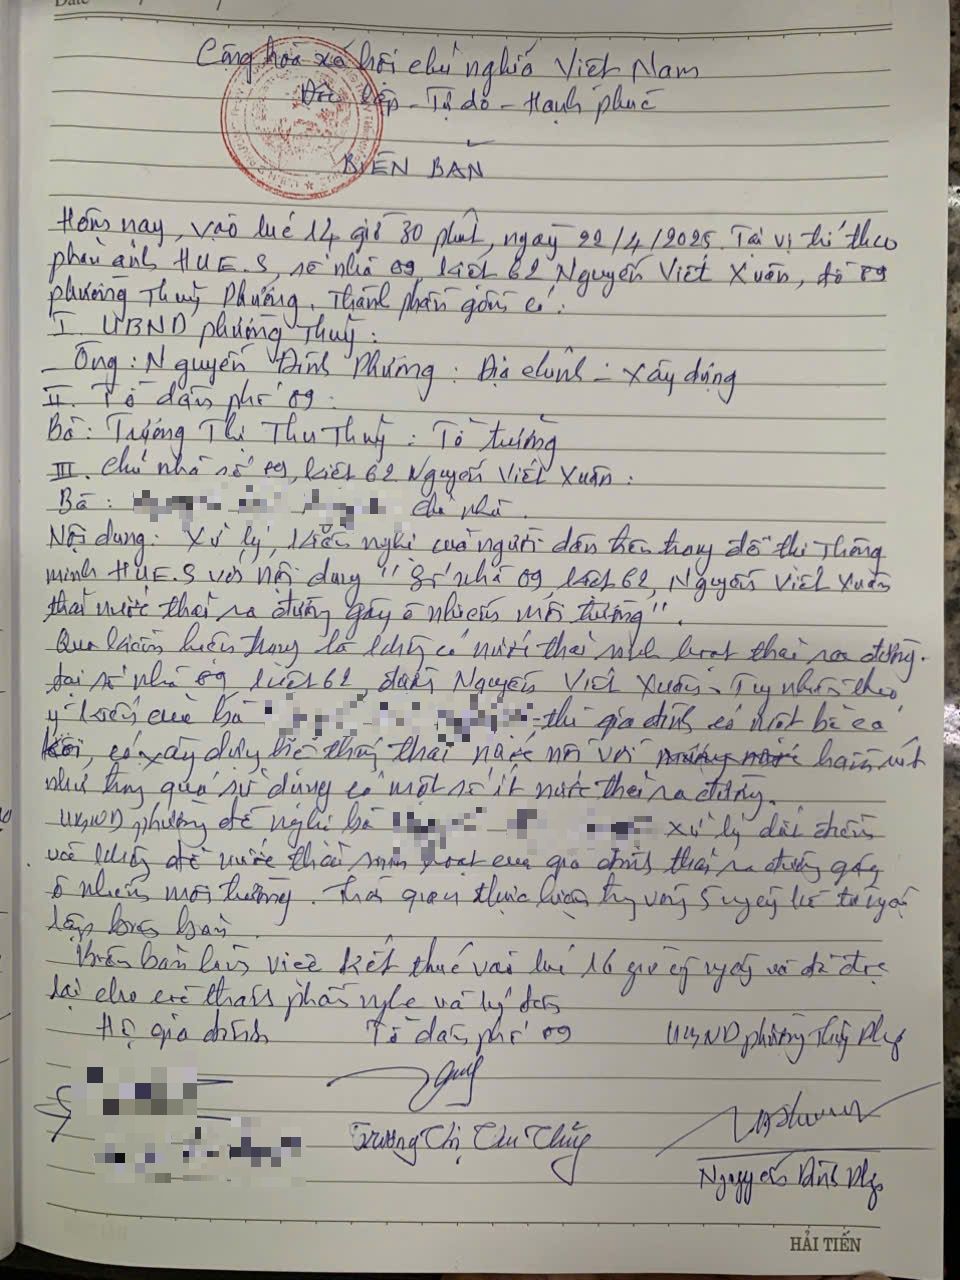 Date
Cộng hoà xã hội chủ nghĩa Việt Nam
Độc lập - Tự do - Hạnh phúc
BIÊN BẢN
Hôm nay, vào lúc 14 giờ 30 phút, ngày 22/4/2025. Tại vị trí theo
phản ánh HUE.S, số nhà 09, kiệt 62, Nguyễn Viết Xuân, tổ 09
phường Thuỷ Phương. Thành phần gồm có:
I. UBND phường Thuỷ :
- Ông: Nguyễn Đình Phương: Địa chính - Xây dựng
II. Tổ dân phố 09:
Bà: Trương Thị Thu Thuỷ: Tổ trưởng
III. Chủ nhà số 09, kiệt 62 Nguyễn Viết Xuân:
Bà: chủ nhà.
Nội dung: Xử lý, kiến nghị của người dân trên trang đô thị Thông
minh HUE.S với nội dung "Số nhà 09, kiệt 62, Nguyễn Viết Xuân
thải nước thải ra đường gây ô nhiễm môi trường".
Qua kiểm hiện trạng là không có nước thải sinh hoạt thải ra đường.
tại số nhà 09 kiệt 62, đường Nguyễn Viết Xuân. Tuy nhiên theo
ý kiến của bà thì gia đình có một bể cá
, có xây dựng hệ thống thải nước nối với hầm rút
như trong quá sử dụng có một số ít nước thải ra đường.
UBND phường đề nghị bà xử lý dứt điểm
và không để nước thải sinh hoạt của gia đình thải ra đường gây
ô nhiễm môi trường. Thời gian thực hiện trong vòng 5 ngày kể từ ngày
lập biên bản.
Biên bản làm việc kết thúc vào lúc 16 giờ cùng ngày và đã đọc
lại cho các thành phần nghe và ký tên
Hộ gia đình Tổ dân phố 09 UBND phường Thuỷ Phg
Trương Thị Thu Thủy
Nguyễn Đình Phg
HẢI TIẾN